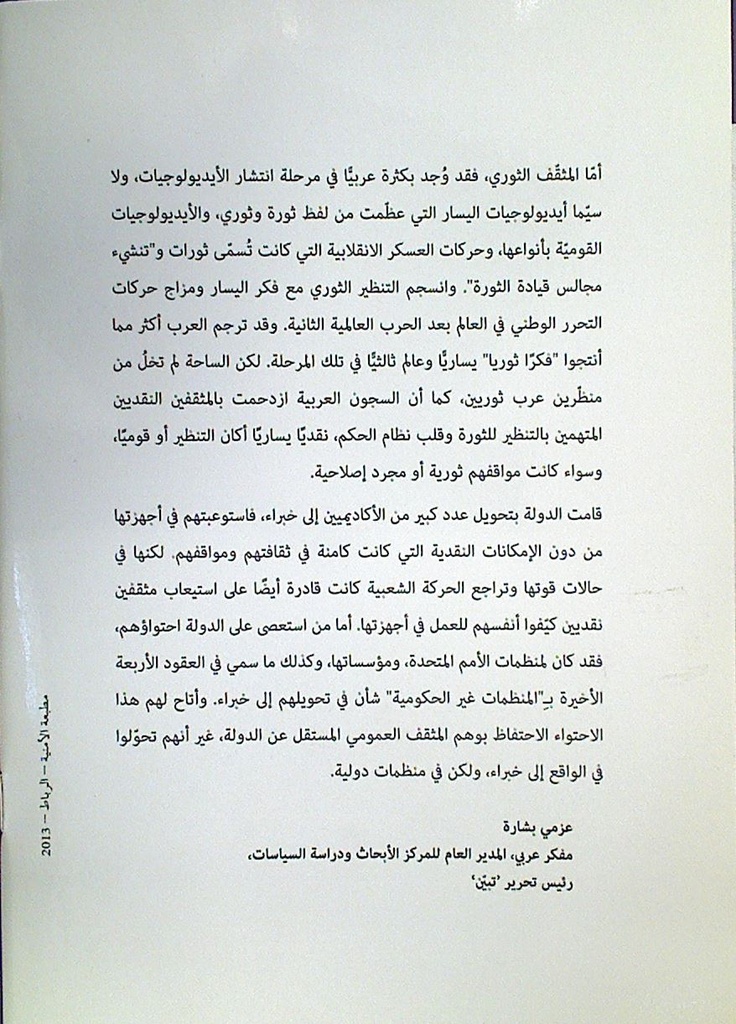 أمّا المثقّف الثوري، فقد وُجد بكثرة عربيًّا في مرحلة انتشار الأيديولوجيات، ولا
سيّما أيديولوجيات اليسار التي عظّمت من لفظ ثورة وثوري، والأيديولوجيات
القوميّة بأنواعها، وحركات العسكر الانقلابية التي كانت تُسمّى ثورات و"تنشيء
مجالس قيادة الثورة". وانسجم التنظير الثوري مع فكر اليسار ومزاج حركات
التحرر الوطني في العالم بعد الحرب العالمية الثانية. وقد ترجم العرب أكثر مما
أنتجوا "فكرًا ثوريا" يساريًّا وعالم ثالثيًّا في تلك المرحلة. لكن الساحة لم تخلُ من
منظّرين عرب ثوريين، كما أن السجون العربية ازدحمت بالمثقفين النقديين
المتهمين بالتنظير للثورة وقلب نظام الحكم، نقديًا يساريًا أكان التنظير أو قوميًا،
وسواء كانت مواقفهم ثورية أو مجرد إصلاحية.
قامت الدولة بتحويل عدد كبير من الأكاديميين إلى خبراء، فاستوعبتهم في أجهزتها
من دون الإمكانات النقدية التي كانت كامنة في ثقافتهم ومواقفهم. لكنها في
حالات قوتها وتراجع الحركة الشعبية كانت قادرة أيضًا على استيعاب مثقفين
نقديين كيّفوا أنفسهم للعمل في أجهزتها. أما من استعصى على الدولة احتواؤهم،
فقد كان لمنظمات الأمم المتحدة، ومؤسساتها، وكذلك ما سمي في العقود الأربعة
الأخيرة بـ"المنظمات غير الحكومية" شأن في تحويلهم إلى خبراء. وأتاح لهم هذا
الاحتواء الاحتفاظ بوهم المثقف العمومي المستقل عن الدولة، غير أنهم تحوّلوا
في الواقع إلى خبراء، ولكن في منظمات دولية.
عزمي بشارة
مفكر عربي، المدير العام للمركز الأبحاث ودراسة السياسات،
رئيس تحرير ‘تبيّن‘
مطبعة الأمنية – الرباط – 2013